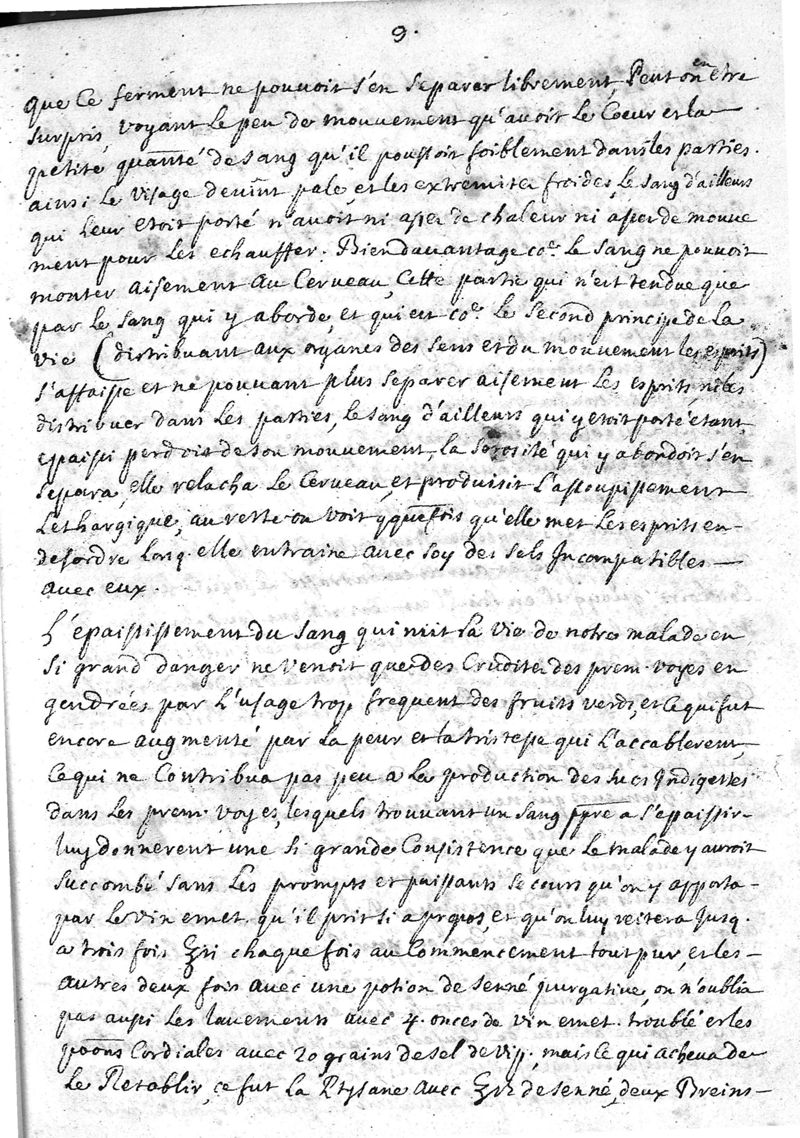 9.
que Ce ferment ne pouvoit s'en separer librement, Peut on en être
surpris, voyant le peu de mouvement qu'avoit le Coeur et la
petite quantité de sang qu'il poussoit foiblement dans les parties.
ainsi le visage devint pale, et les extremitez froides, le sang d'ailleurs
qui leur etoit porté n'avoit ni assez de chaleur ni assez de mouve
ment pour les echauffer. Bien davantage coe. le sang ne pouvoit
monter aisement au Cerveau, Cette partie qui n'est tendue que
par le sang qui y aborde, et qui est coe. le second principe de la
vie (distribuant aux organes des sens et du mouvement les esprits)
s'affaisse et ne pouvant plus separer aisement les esprits, ni les
distribuer dans les parties, le sang d'ailleurs qui y etoit porté etant
epaissi perdoit de son mouvement, la serosité qui y abordoit s'en
separa, elle relacha le Cerveau, et produisit l'assoupissement
Lethargique, au reste on voit qquefois qu'elle met les esprits en
desordre lorsq. elle entraine avec soy des sels Incompatibles
avec eux.
L'epaississement du sang qui mit la vie de notre malade en
si grand danger ne venoit que des Cruditez des prem. voyes en
gendrées par l'usage trop frequent des fruits verds, et ce qui fut
encore augmenté par la peur et la tristesse qui l'accablerent,
Ce qui ne Contribua pas peu a la production des sucs Indigestes
dans les prem. voyes, lesquels trouvant un sang ppre a s'epaissir
luy donnerent une si grande Consistence que le malade y auroit
succombé sans les prompts et puissants secours qu'on y apporta
par le vin emet. qu'il prit si a propos, et qu'on luy reitera Jusq.
a trois fois chaque fois au Commencement tout pur, et les
autres deux fois avec une potion de senné purgative, on n'oublia
pas aussi les lavements avec 4. onces de vin emet. troublé et les
poons Cordiales avec 20 grains de sel de vip. mais ce qui acheva de
le Retablir, ce fut la Ptysane avec de senné, deux Breins